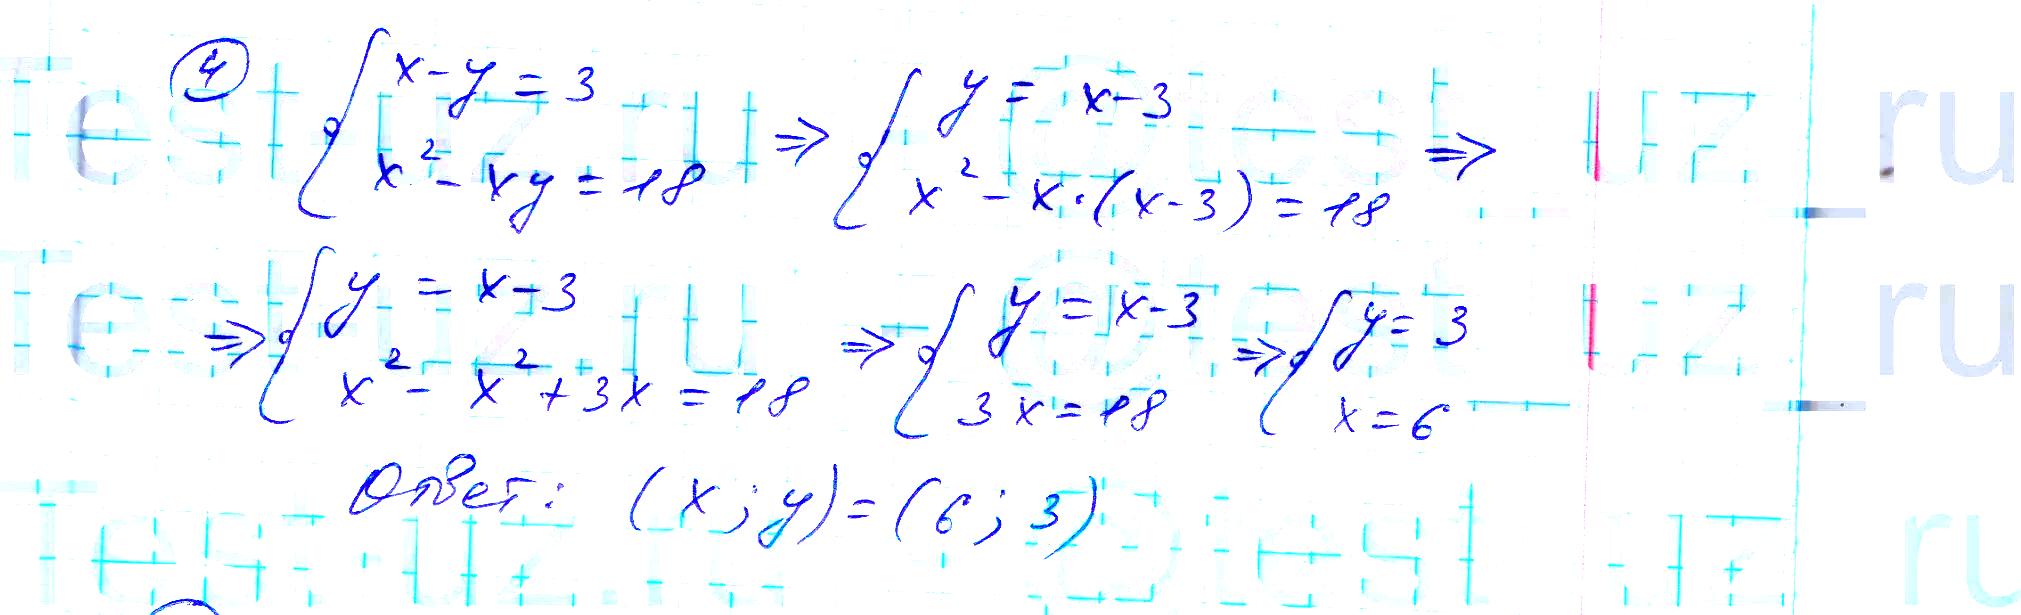 ④ { x-y=3 ⇒ { y = x-3 ⇒
x²-xy=18 x²-x·(x-3)=18
⇒ { y = x-3 ⇒ { y = x-3 ⇒ { y=3
x²-x²+3x=18 3x=18 x=6
Ответ: (x;y)=(6;3)
Test-uz.ru @test_uz_ru
Test-uz.ru @test_uz_ru
Test-uz.ru @test_uz_ru